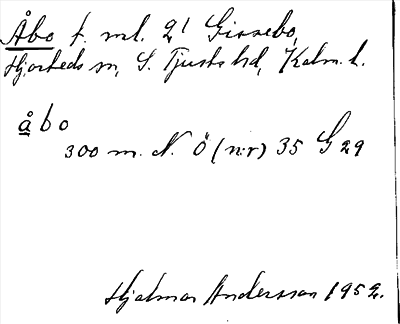 Åbo t. ml. 21 Gissebo,
Hjorteds sn, S. Tjusts hd, Kalm. l.
åbo
300 m. N. Ö (n:r) 35 G 29
Hjalmar Andersson 1952.